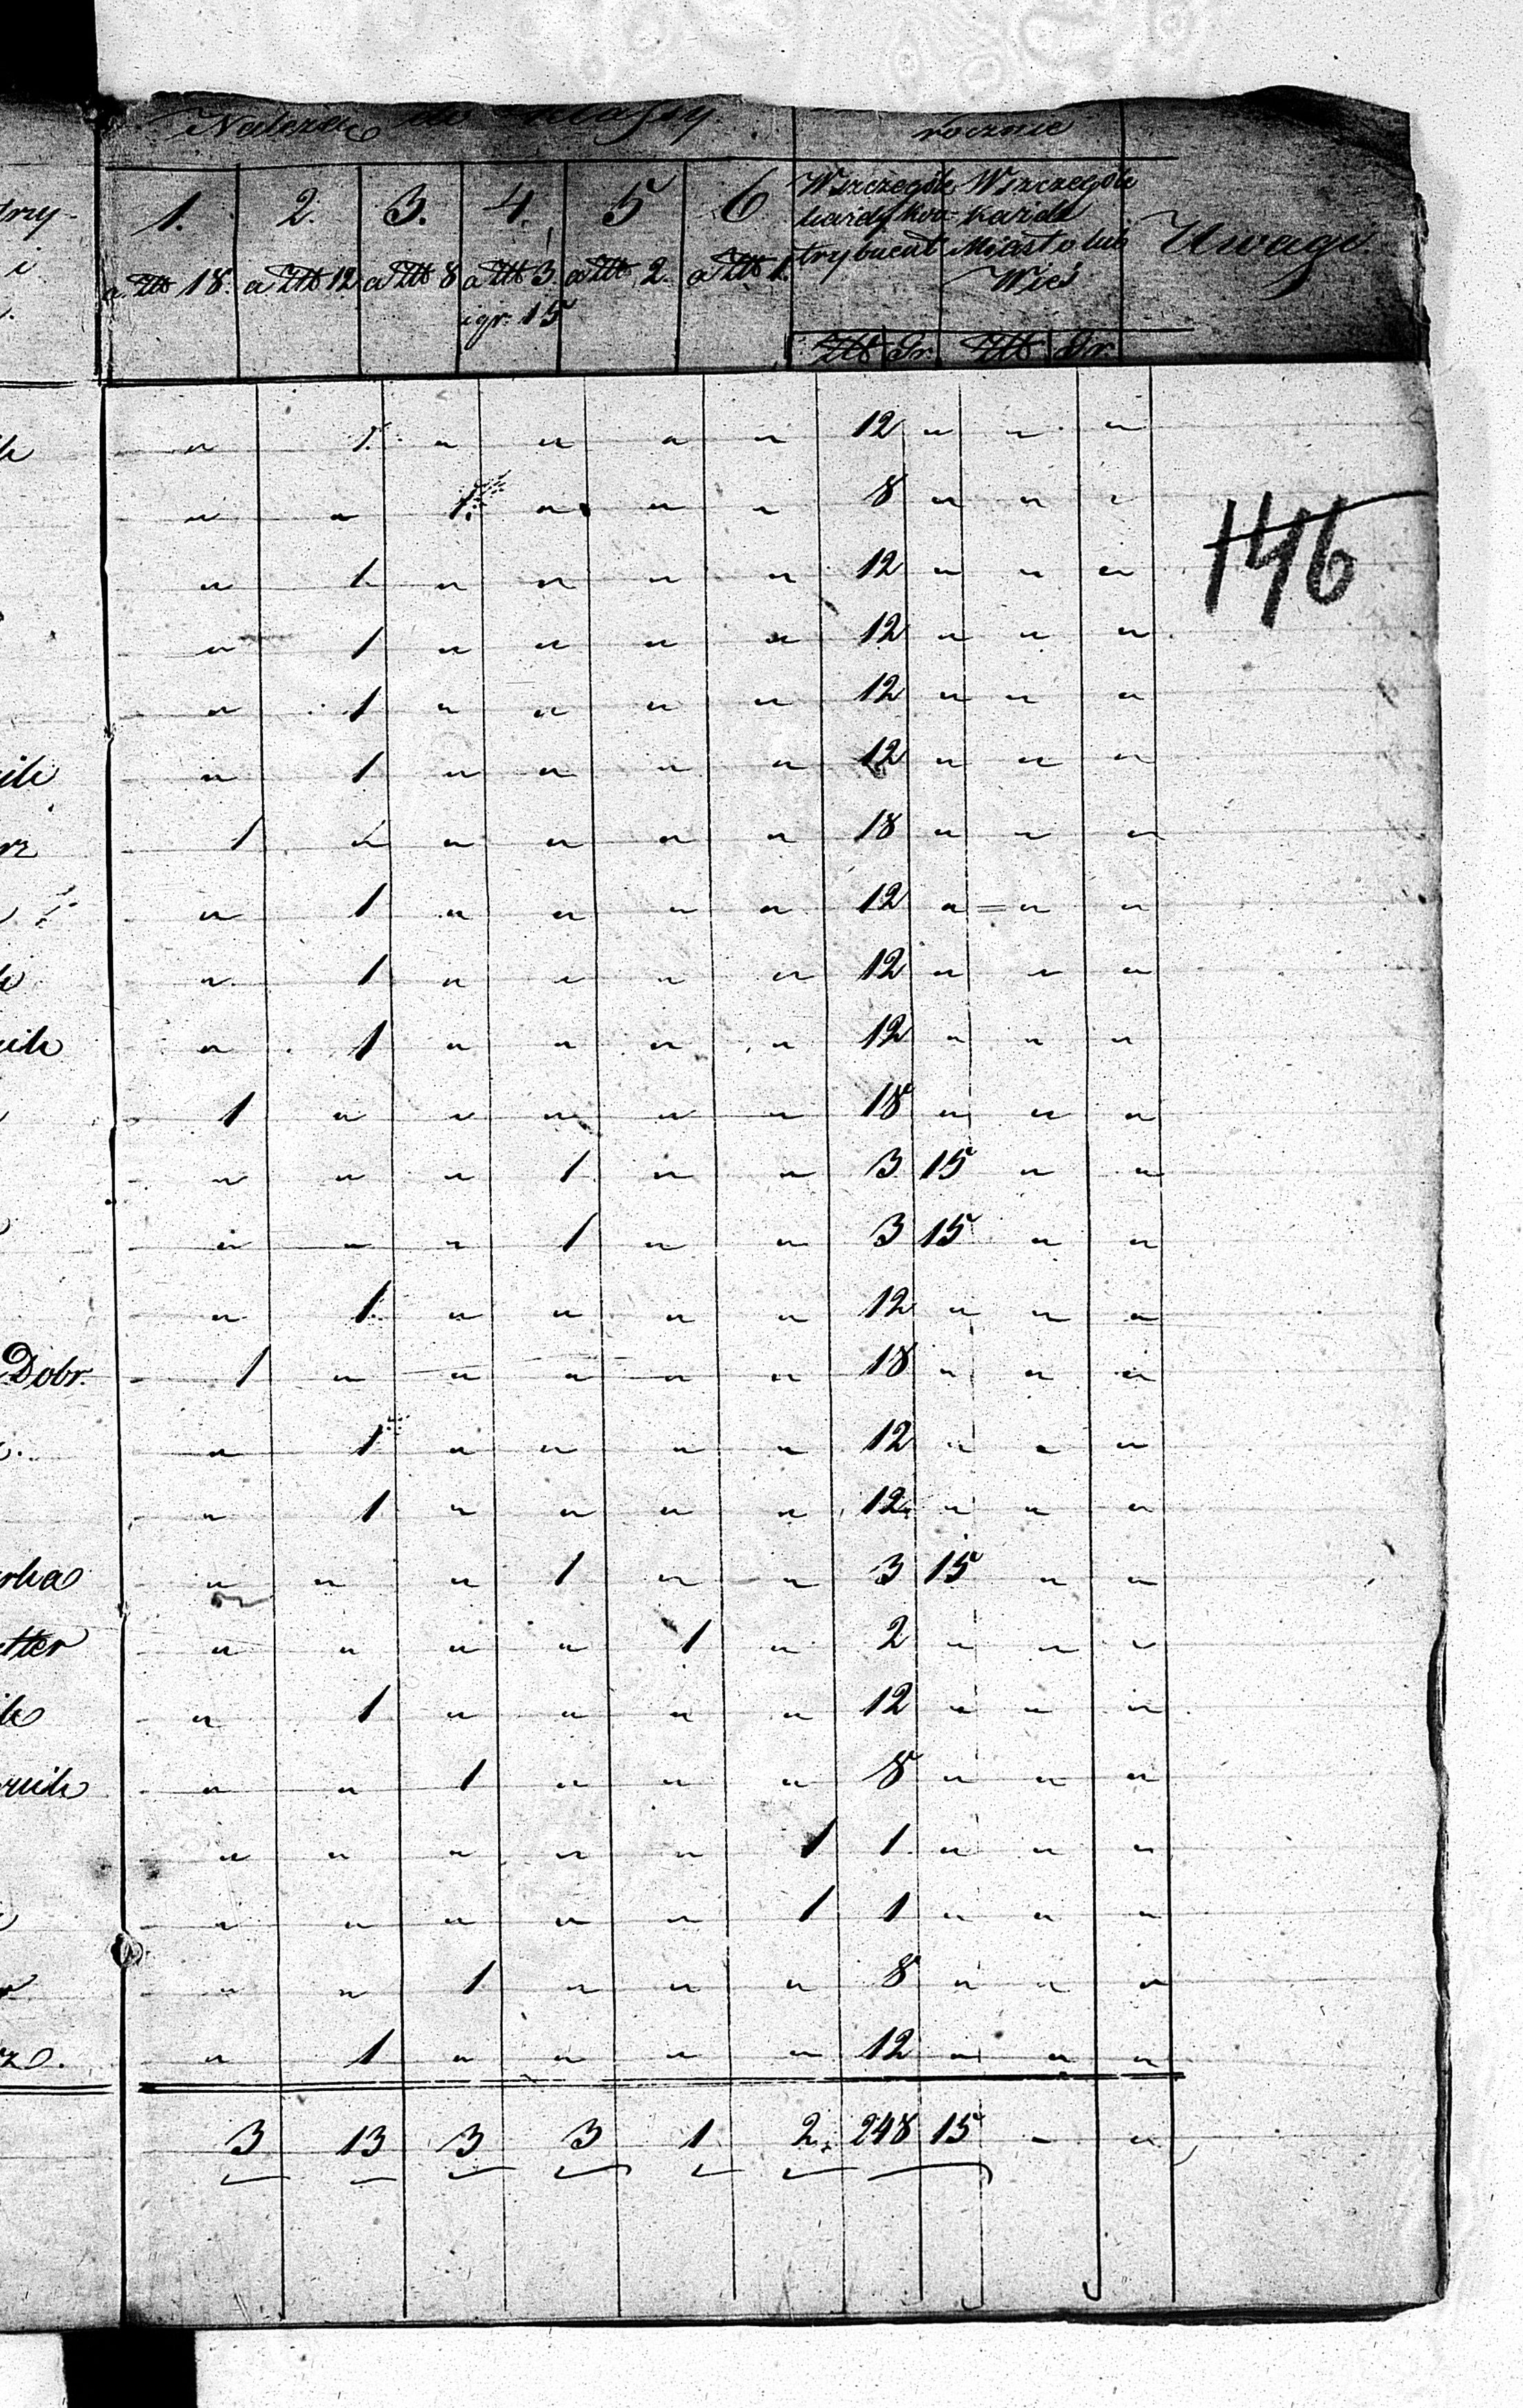 Należą do klassy. rocznie
1. 2. 3. 4. 5 6 Wszczególe każdy kon- trybuent Wszczególe każde Miasto lub Wieś Uwagi
a Złt 18. a Złt 12 a Złt 8 a Złt 3. i gr. 15 a Złt 2. a Złt 1.
Złt Gr. Złt Gr.
" 1. " " " " 12 " " "
" " 1. " " " 8 " " "
146
" 1 " " " " 12 " " "
" 1 " " " " 12 " " "
" 1 " " " " 12 " " "
" 1 " " " " 12 " " "
1 " " " " " 18 " " "
" 1 " " " " 12 " " "
" 1 " " " " 12 " " "
" 1 " " " " 12 " " "
1 " " " " " 18 " " "
" " " 1 " " 3 15 " "
" " " 1 " " 3 15 " "
" 1. " " " " 12 " " "
Dobr. 1 " " " " " 18 " " "
" 1 " " " " 12 " " "
" 1 " " " " 12 " " "
" " " 1 " " 3 15 " "
" " " " 1 " 2 " " "
" 1 " " " " 12 " " "
" " 1 " " " 8 " " "
" " " " " 1 1 " " "
" " " " " 1 1 " " "
" " 1 " " " 8 " " "
" 1 " " " " 12 " " "
3 13 3 3 1 2 248 15 " "